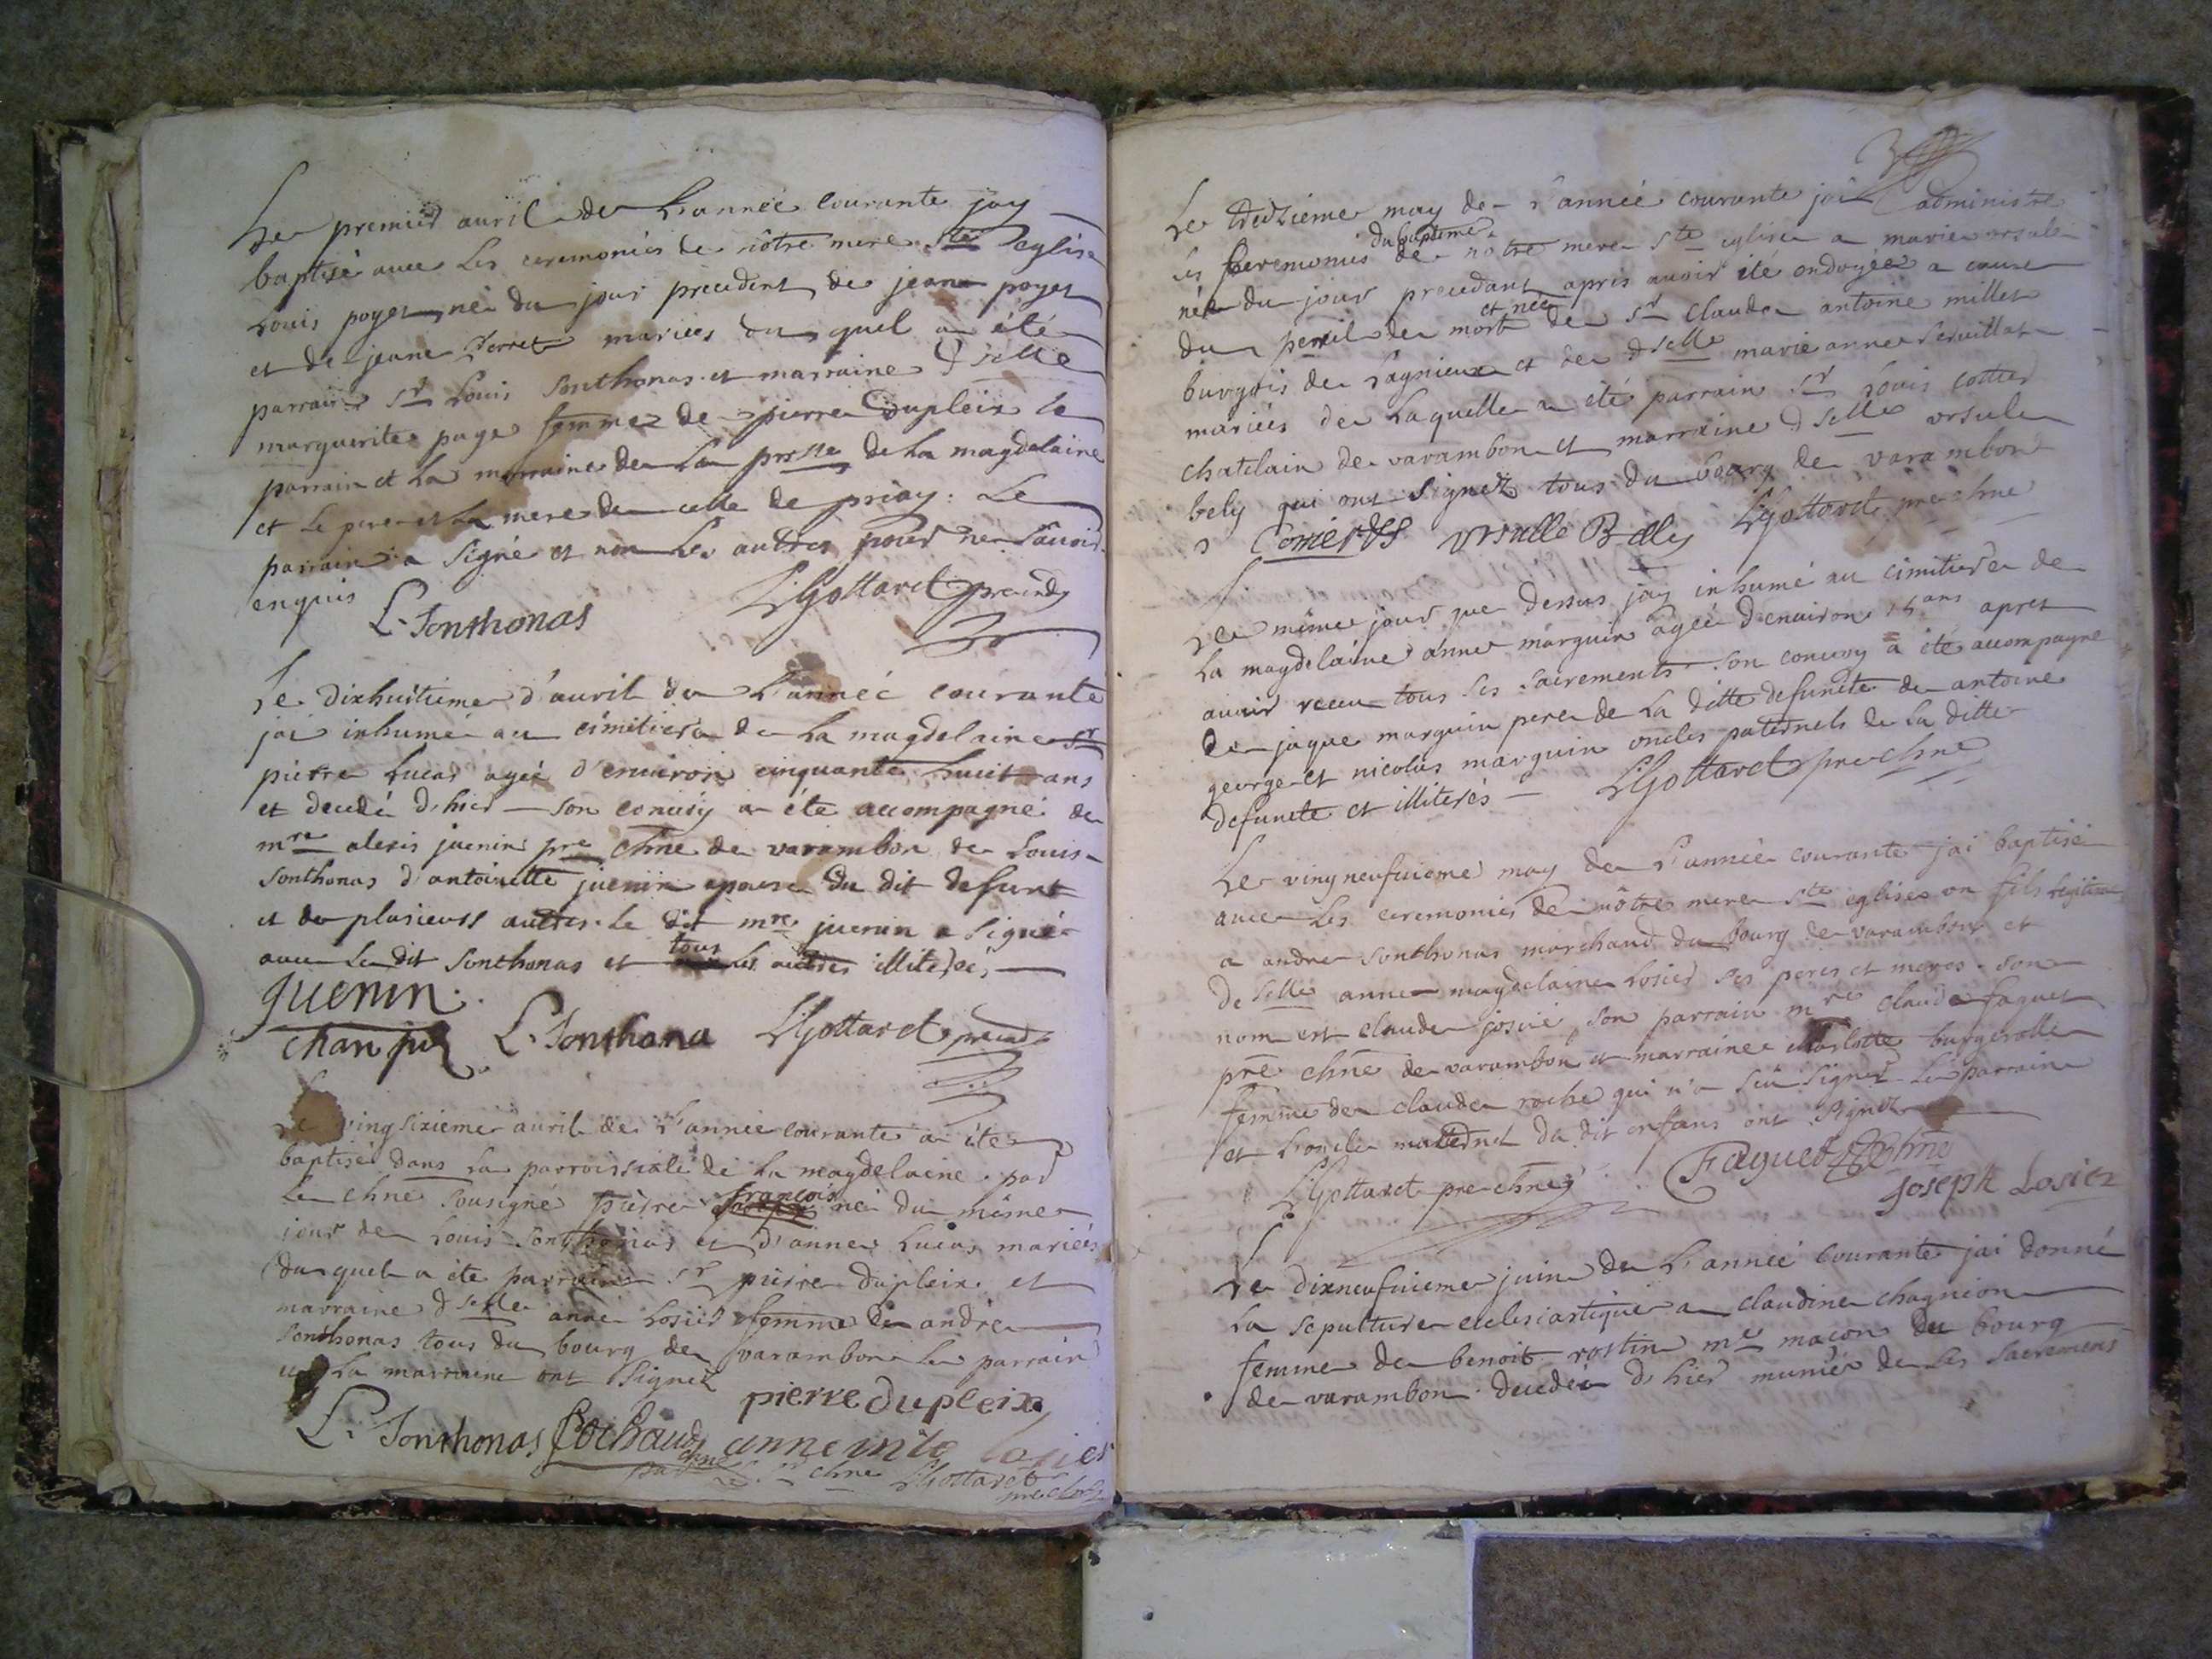 Le premier avril de L'année courante jay
baptisé avec les ceremonies de nôtre mere Ste eglise
Louis poyet né du jour precedent de jeane poyet
et de jeane perret mariées du quel a été
parrain Sr Louis Sonthonas et marraine dselle
marguerite page femme de pierre Dupleix le
parrain et la marraine de la prsse de La magdelaine
et Le pere et La mere de celle de priay. Le
parrain a signé et non Les autres pour ne sçavoir
enquis
L. Sonthonas L'Gottard
Le dixhuitieme d'avril de L'année courante
jai inhumé au cimitiere de La magdelaine Sr
pierre Lucas agée d'environ cinquante huit ans
et decedé d'hier son convoy a été accompagné de
mre alexis juenin pre chne de varambon de Louis
Sonthonas d'antoinette juenin epouse du dit defunt
et de plusieurs autres le dit mre juenin a signé
avec Le dit Sonthonas et tous les autres illiterés
juenin
chan pr L. Sonthona L'Gottard
Le ving sixieme avril de L'année courante a été
baptisé dans La parroissiale de La magdelaine par
Le chne sousigné pierre françois né du même
jour de Louis Sonthonas et d'anne Lucas mariés
du quel a été parrain Sr pierre dupleix et
marraine dselle anne Losier femme de andre
Sonthonas tous du bourg de varambon Le parrain
et La marraine ont signéz
pierre dupleix
L. Sonthonas Cochaud anne Losier
chne L'Gottard
Le treizieme may de L'année courante jai administré
les ceremonies du baptême de notre mere Ste eglise a marie ursule
née du jour precedant apres avoir été ondoyée a cause
du peril de mort et née de Sr Claude antoine millet
burgois de Lagnieux et de dselle marie anne Servillat
mariées de Laquelle a été parrain Sr Louis cottier
chatelain de varambon et marraine dselle ursule
bely qui ont signéz tous du bourg de varambon
ursulle Belly L'Gottard pre chne
Le même jour que dessus jay inhumé au cimitiere de
La magdelaine anne marguin agée d'environ 15 ans apres
avoir receu tous ses sacrements son convoy a été accompagné
de jaque marguin pere de La ditte defuncte de antoine
george et nicolas marguin oncles paternels de La ditte
defuncte et illiterés L'Gottard pre chne
Le vingneufuieme may de L'année courante jai baptisé
avec Les ceremonies de nôtre mere Ste eglise un fils legitime
a andre Sonthonas marchand du bourg de varambon et
de dselle anne magdelaine Losier ses peres et meres. son
nom est claude josué son parrain mre claude faguet
pre chne de varambon et marraine charlotte burgerolle
femme de claude roche qui n'a sçu signer Le parrain
et L'oncle maternel du dit enfans ont signéz
L'Gottard pre chne Faguet chne
Joseph Losier
Le dixneufuieme juin de L'année courante jai donné
La sepulture eclesiastique a claudine chagnion
femme de benoit rostin me maçon du bourg
de varambon decedée d'hier munie de Les sacremens